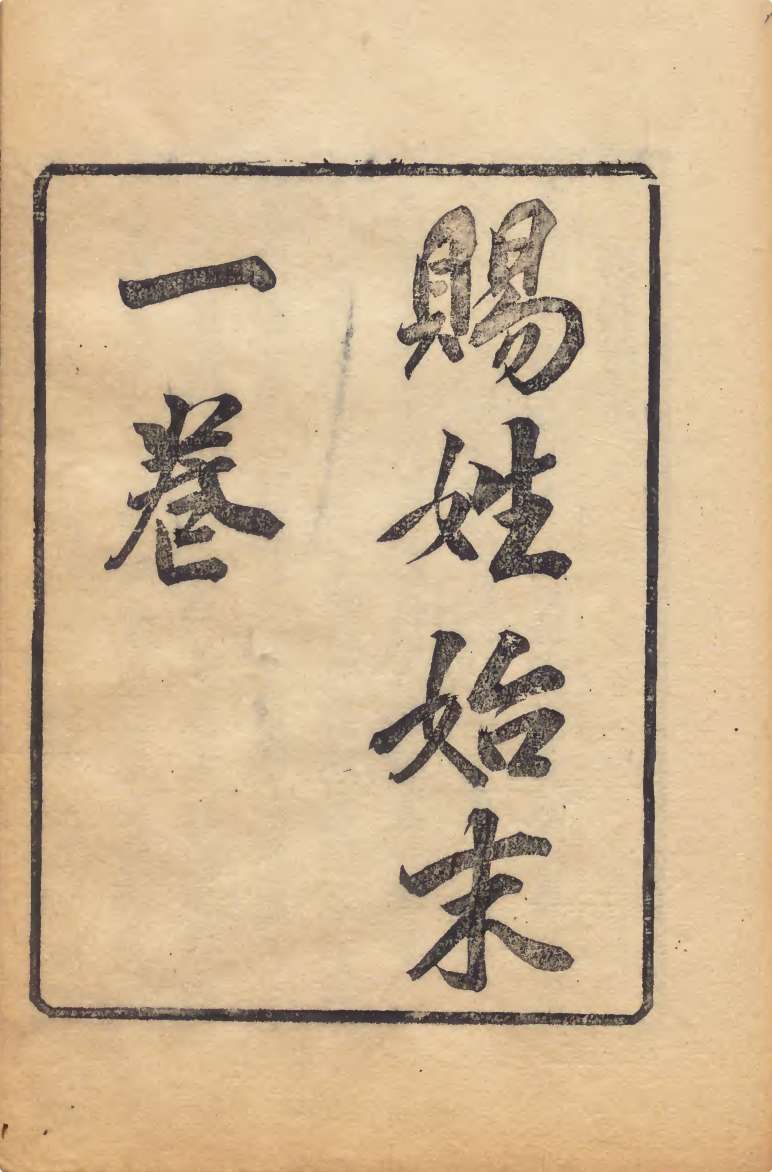 賜姓始末
一卷